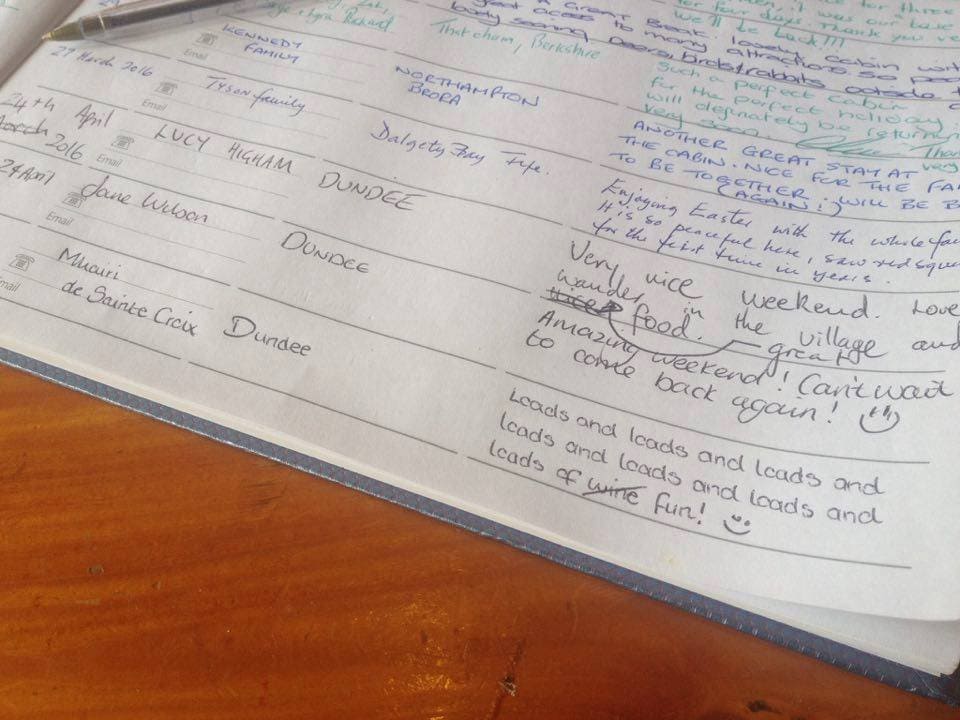 for three
for few days. Thank you
we'll be back!!!
Thatcham, Berkshire
A Great Break. lovely cabin
great access to many attractions. so
body seeing Deers, birds & rabbits outside
KENNEDY
FAMILY
Email
NORTHAMPTON
BRORA
Such a perfect cabin
for the perfect holiday,
will definately be returning
very soon.
27 March 2016
Tyson family
Email
Dalgety Bay Fife.
ANOTHER GREAT STAY AT
THE CABIN. NICE FOR THE
TO BE TOGETHER. WILL BE
AGAIN! :)
24th April
March 2016
LUCY HIGHAM
Email
DUNDEE
Enjoying Easter with the whole
It is so peaceful here, saw red
for the first time in years.
24 April
Jane Wilson
Email
DUNDEE
Very nice weekend. Love
wander in the village and
food. great
Mhairi
de Sainte Croix
Email
Dundee
Amazing weekend! Can't wait
to come back again!
Loads and loads and loads and
loads and loads and loads and
loads of wine fun!